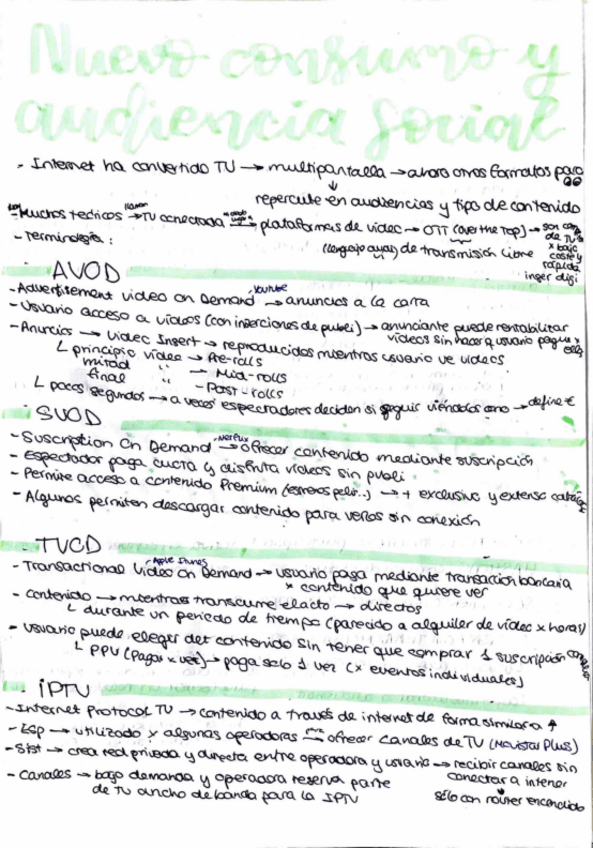 Nuevo consumo y
audiencia social
- Internet ha convertido TV → multipantalla → ahora otros formatos para
↓
repercute en audiencias y tipo de contenido
- Muchos teóricos → TV conectada → plataformas de video → OTT (over the top) → son
(lenguaje av) de transmisión libre
de TV
x bajo
coste y
rápida
inser digi
- Terminología:
· AVOD
- Advertisement video on Demand → anuncios a la carta
Youtube
- Usuario acceso a vídeos (con inserciones de publi) → anunciante puede rentabilitar
vídeos sin hacer q usuario pague x
ello
- Anuncios → Video Insert → reproducidos mientras usuario ve videos
└ principio video → Pre-rolls
mitad " → Mid-rolls
final " - Post-rolls
└ pocos segundos → a veces espectadores deciden si seguir viéndolos o no → define €
· SVOD
- Suscription On Demand → ofrecer contenido mediante suscripción
Netflix
- Espectador paga cuota y disfruta vídeos sin publi
- Permite acceso a contenido Premium (estrenos pelis..) → + exclusivo y extenso
- Algunos permiten descargar contenido para verlos sin conexión
· TVOD
- Transactional Video On Demand → usuario paga mediante transacción bancaria
Apple Itunes
x contenido que quiere ver
- Contenido → mientras transcurre el acto → directos
└ durante un periodo de tiempo (parecido a alquiler de vídeo x horas)
- Usuario puede elegir del contenido sin tener que comprar 1 suscripción
└ PPV (Pagar x ver) → paga solo 1 vez (x eventos individuales)
· iPTV
- Internet Protocol TV → contenido a través de internet de forma similar a ↑
- Esp → utilizado x algunas operadoras → ofrecer canales de TV (Movistar Plus)
para
- Sist → crea red privada y directa entre operadora y usuario → recibir canales sin
conectar a inter
↓
sólo con router encendido
- Canales → bajo demanda y operadora reserva parte
de tu ancho de banda para la IPTV